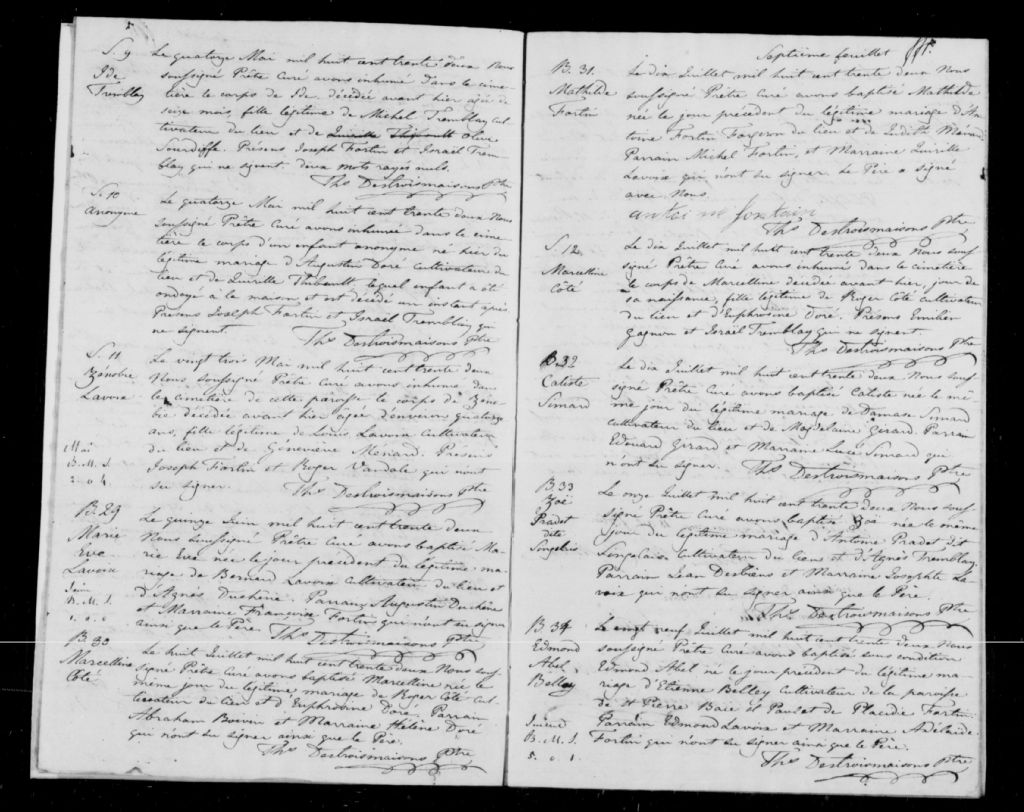 S. 9
Ide
Tremblay
Le quatorze Mai mil huit cent trente deux Nous
soussigné Prêtre Curé avons inhumé dans le cime-
tière le corps de Ide, décédée avant hier agée de
seize mois, fille légitime de Michel Tremblay cul-
tivateur du lieu et de Quirille Thibeault Olive
Présens Joseph Fortin et Israël Trem-
blay qui ne signent. deux mots rayés nuls.
Ths Destroismaisons Ptre
S. 10
Anonyme
Le quatorze Mai mil huit cent trente deux Nous
soussigné Prêtre Curé avons inhumé dans le cime-
tière le corps d'un enfant anonyme né hier du
légitime mariage d'Augustin Doré cultivateur du
lieu et de Quirille Thibeault, lequel enfant a été
ondoyé à la maison et est décédé un instant après.
Présens Joseph Fortin et Israël Tremblay qui
ne signent.
Ths Destroismaisons Ptre
S. 11
Zénobie
Lavoix
Le vingt trois Mai mil huit cent trente deux
Nous soussigné Prêtre Curé avons inhumé dans
le cimetière de cette paroisse le corps de Zéno-
bie décédée avant hier agée d'environ quatorze
ans, fille légitime de Louis Lavoix cultivateur
du lieu et de Géneviève Ménard. Présens
Joseph Fortin et Roger Vandale qui n'ont
su signer.
Ths Destroismaisons Ptre
Mai
B. M. S.
2. 0. 4.
B. 29
Marie
Eve
Lavoix
Le quinze Juin mil huit cent trente deux
Nous soussigné Prêtre Curé avons baptisé Ma-
rie Eve née le jour précédent du légitime ma-
riage de Bernard Lavoix cultivateur du lieu et
d'Agnès Duchêne. Parrain Augustin Duchêne
et Marraine Françoise Fortin qui n'ont su signer
ainsi que le Père.
Ths Destroismaisons Ptre
Juin
B. M. S.
1. 0. 0
B. 30
Marcelline
Côté
Le huit Juillet mil huit cent trente deux Nous sous-
signé Prêtre Curé avons baptisé Marcelline née le
même jour du légitime mariage de Roger Côté cul-
tivateur du lieu et d'Euphrosine Doré. Parrain
Abraham Boivin et Marraine Hélène Doré
qui n'ont su signer ainsi que le Père.
Ths Destroismaisons Ptre
Septième feuillet
B. 31.
Mathilde
Fortin
Le dix Juillet mil huit cent trente deux Nous
soussigné Prêtre Curé avons baptisé Mathilde
née le jour précédent du légitime mariage d'An-
toine Fortin Forgeron du lieu et de Judith Ménard.
Parrain Michel Fortin, et Marraine Quirille
Lavoix qui n'ont su signer. Le Père a signé
avec Nous.
antoine fortain
Ths Destroismaisons Ptre
S. 12
Marcelline
Côté
Le dix Juillet mil huit cent trente deux Nous sous-
signé Prêtre Curé avons inhumé dans le cimetière
le corps de Marcelline décédée avant hier, jour de
sa naissance, fille légitime de Roger Côté cultivateur
du lieu et d'Euphrosine Doré. Présens Emilien
Gagnon et Israël Tremblay qui ne signent.
Ths Destroismaisons Ptre
B. 32
Caliste
Simard
Le dix Juillet mil huit cent trente deux Nous sous-
signé Prêtre Curé avons baptisé Caliste née le mê-
me jour du légitime mariage de Damase Simard
cultivateur du lieu et de Magdelaine Gérard. Parrain
Edouard Girard et Marraine Luce Simard qui
n'ont su signer.
Ths Destroismaisons Ptre
B. 33
Zoë
Pradet
dite
Le onze Juillet mil huit cent trente deux Nous sous-
signé Prêtre Curé avons baptisé Zoë née le même
jour du légitime mariage d'Antoine Pradet dit
cultivateur du lieu et d'Agnès Tremblay.
Parrain Jean Desbiens et Marraine Josephte La-
voix qui n'ont su signer ainsi que le Père.
Ths Destroismaisons Ptre
B. 34
Edmond
Abel
Belley
Le vingt neuf Juillet mil huit cent trente deux Nous
soussigné Prêtre Curé avons baptisé sous condition
Edmond Abel né le jour précédent du légitime ma-
riage d'Etienne Belley cultivateur de la paroisse
de St Pierre Baie St Paul et de Placidie Fortin.
Parrain Edmond Lavoix et Marraine Adélaïde
Fortin qui n'ont su signer ainsi que le Père.
Ths Destroismaisons Ptre
B. M. S.
5. 0. 1.